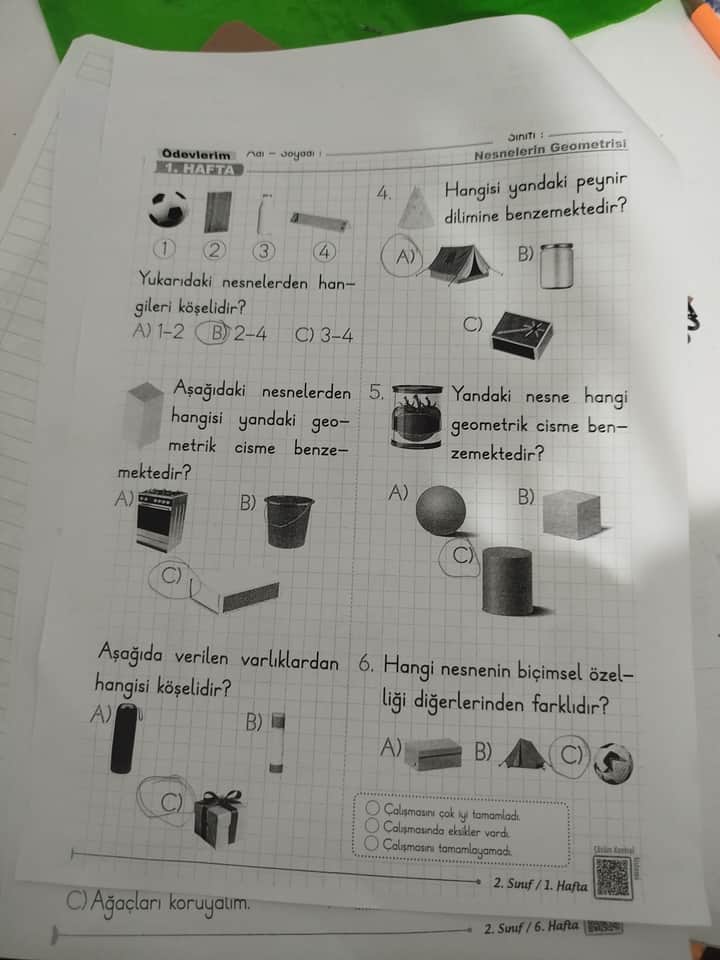 Ödevlerim Adı - Soyadı :
Sınıfı :
1. HAFTA
Nesnelerin Geometrisi
1 2 3 4
Yukarıdaki nesnelerden han-
gileri köşelidir?
A) 1-2 B) 2-4 C) 3-4
Aşağıdaki nesnelerden
hangisi yandaki geo-
metrik cisme benze-
mektedir?
A) B)
C)
Aşağıda verilen varlıklardan
hangisi köşelidir?
A) B)
C)
4. Hangisi yandaki peynir
dilimine benzemektedir?
A) B)
C)
5. Yandaki nesne hangi
geometrik cisme ben-
zemektedir?
A) B)
C)
6. Hangi nesnenin biçimsel özel-
liği diğerlerinden farklıdır?
A) B) C)
Çalışmasını çok iyi tamamladı.
Çalışmasında eksikler vardı.
Çalışmasını tamamlayamadı.
2. Sınıf / 1. Hafta
C) Ağaçları koruyalım.
2. Sınıf / 6. Hafta